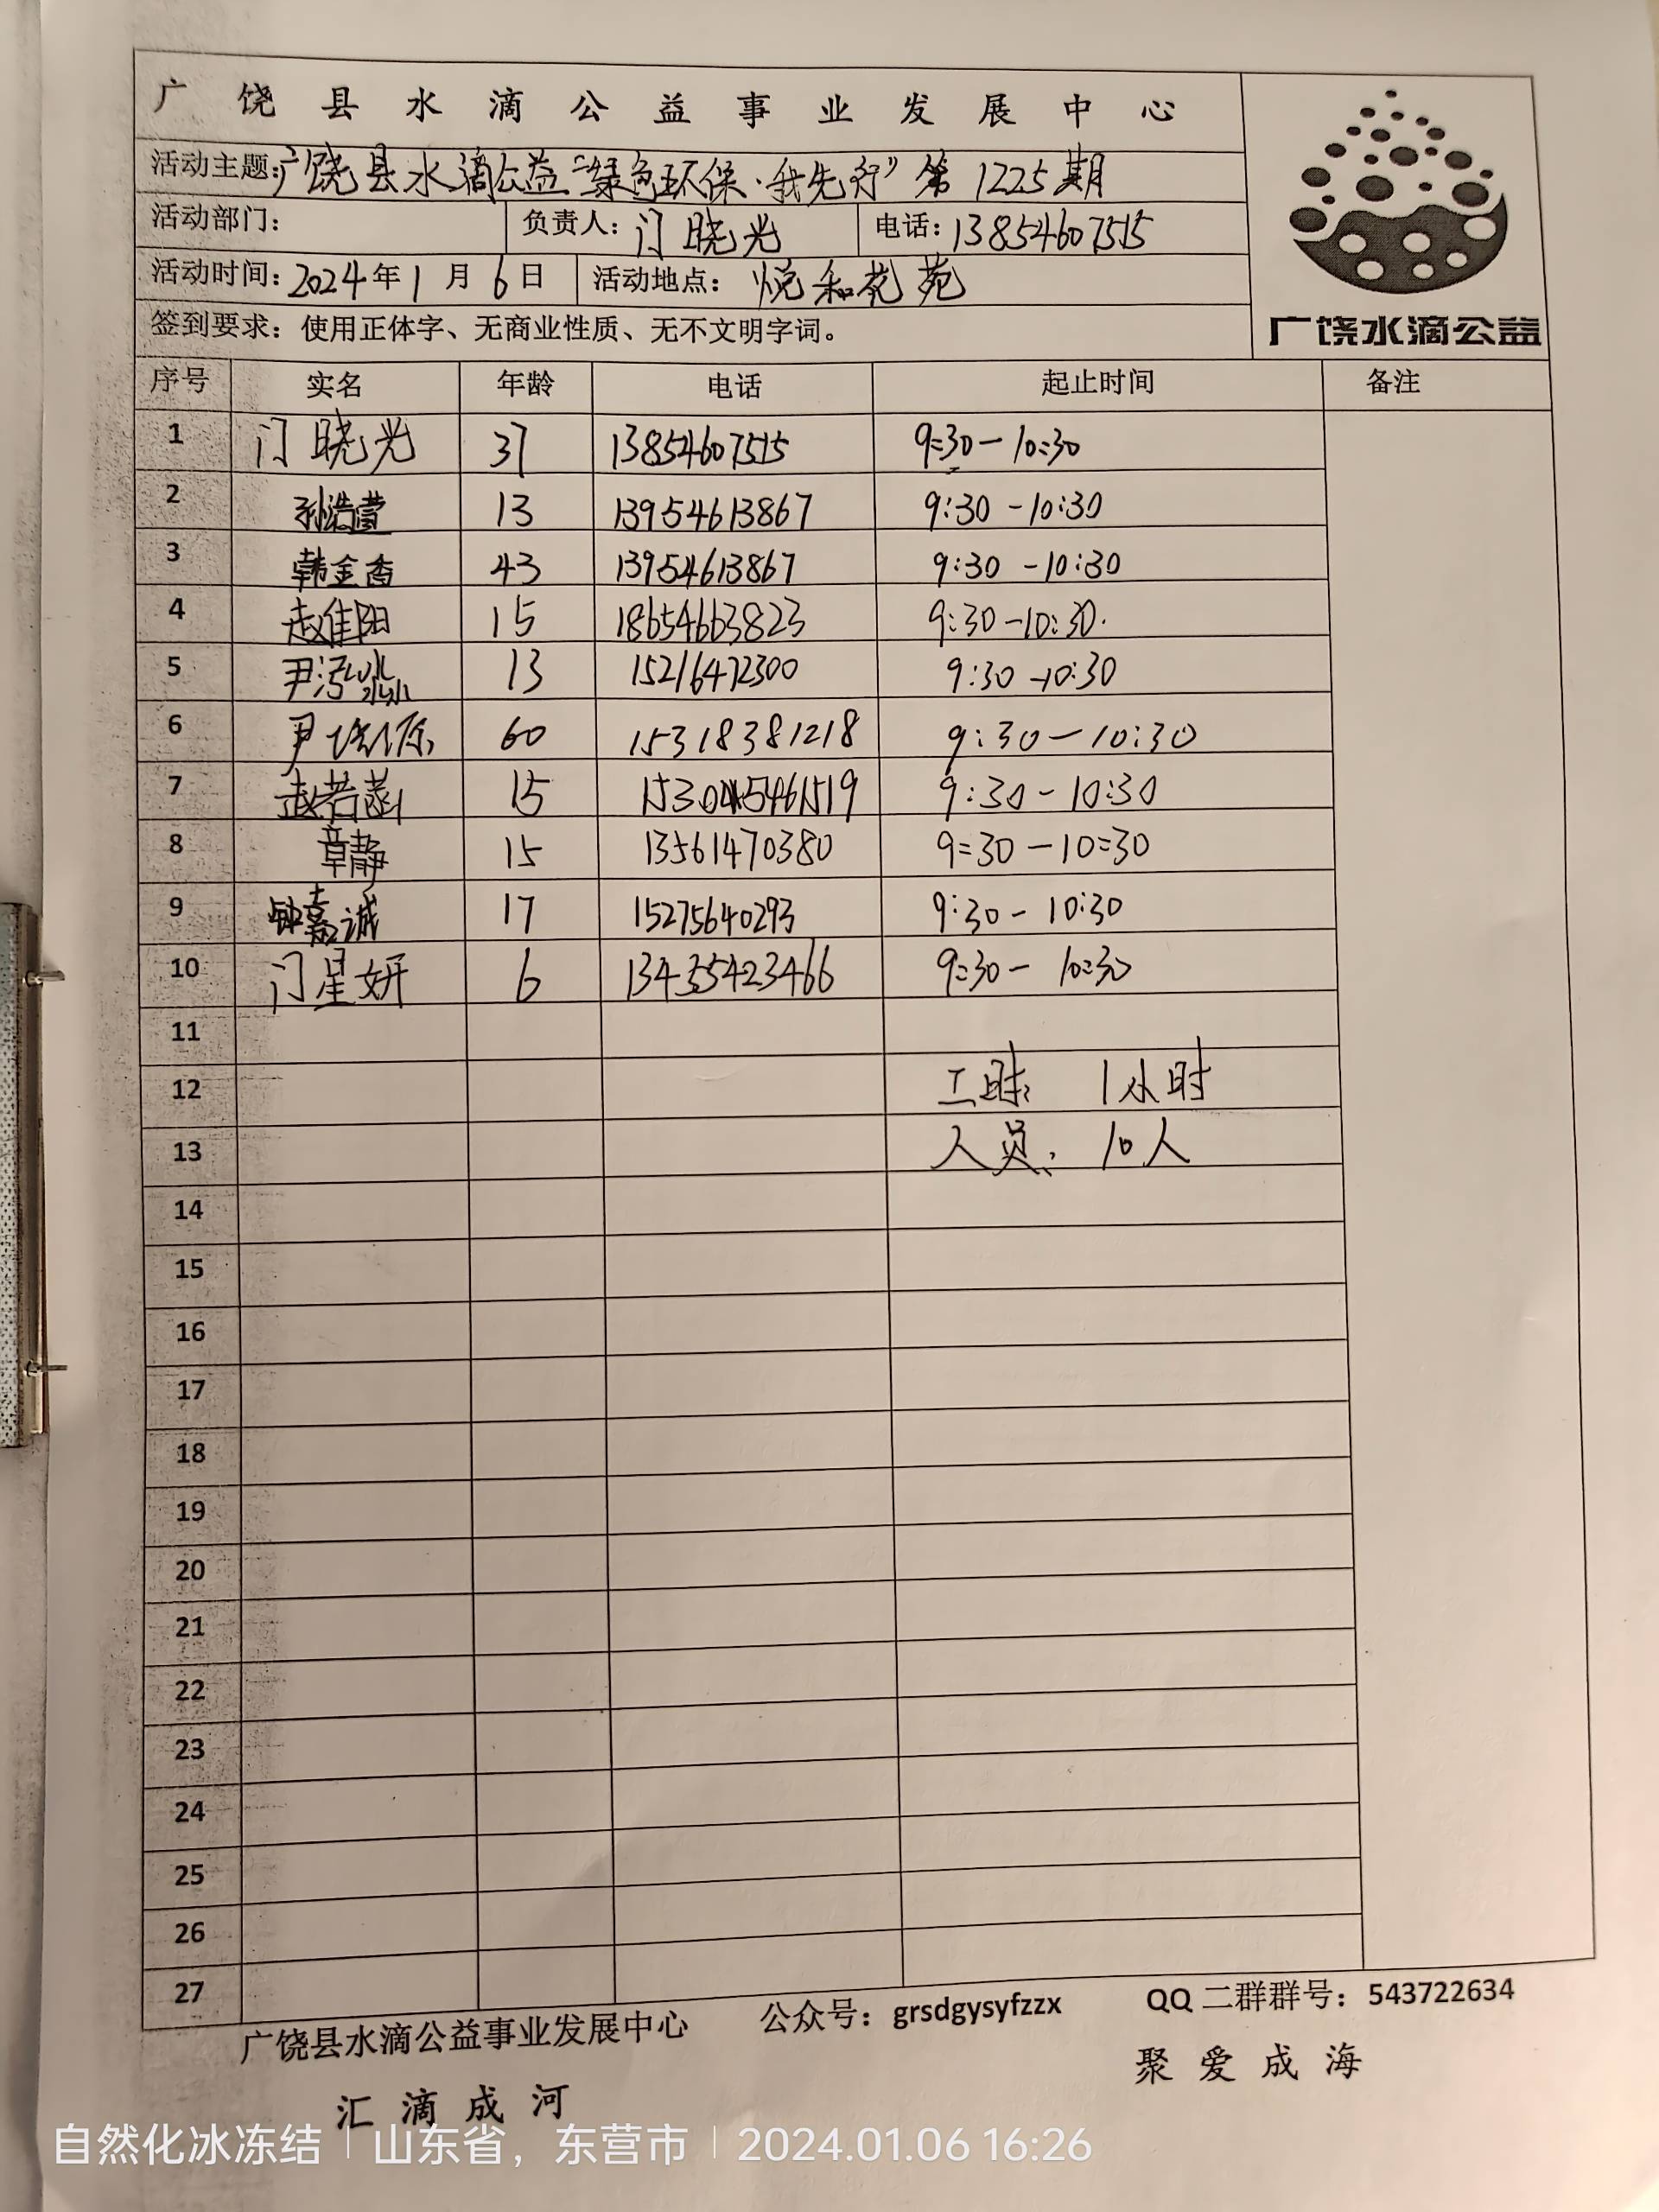 广饶县水滴公益事业发展中心
活动主题:广饶县水滴公益“绿色环保·我先行”第1225期
活动部门: 负责人: 门晓光 电话: 13854607515
活动时间: 2024年1月6日 活动地点: 悦和花苑
签到要求: 使用正体字、无商业性质、无不文明字词。
广饶水滴公益
序号 实名 年龄 电话 起止时间 备注
1 门晓光 37 13854607515 9:30-10:30
2 孙浩萱 13 13954613867 9:30-10:30
3 韩金香 43 13954613867 9:30-10:30
4 赵佳阳 15 18654663823 9:30-10:30.
5 尹泓淼 13 15216472300 9:30-10:30
6 尹 60 15318381218 9:30-10:30
7 赵若菡 15 9:30-10:30
8 章静 15 13561470380 9:30-10:30
9 钟嘉诚 17 15275640293 9:30-10:30
10 门星妍 6 13455423466 9:30-10:30
11
12 工时: 1小时
13 人员: 10人
14
15
16
17
18
19
20
21
22
23
24
25
26
27
广饶县水滴公益事业发展中心 公众号: grsdgysyfzzx QQ二群群号: 543722634
汇滴成河 聚爱成海
自然化冰冻结 | 山东省，东营市 | 2024.01.06 16:26